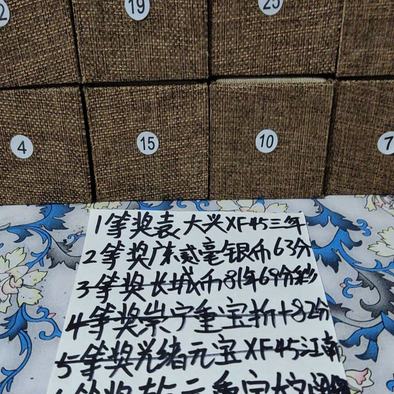 2
19
25
4
15
10
7
1等奖袁大头XF45三年
2等奖广东贰毫银币63分
3等奖长城币81年69分
4等奖崇宁重宝折十82分
5等奖光绪元宝XF45江南